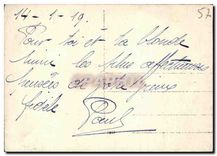 14-1-19.
57
Pour toi et la blonde
les plus affectueuses
pensées de votre vieux
fidèle
Paul